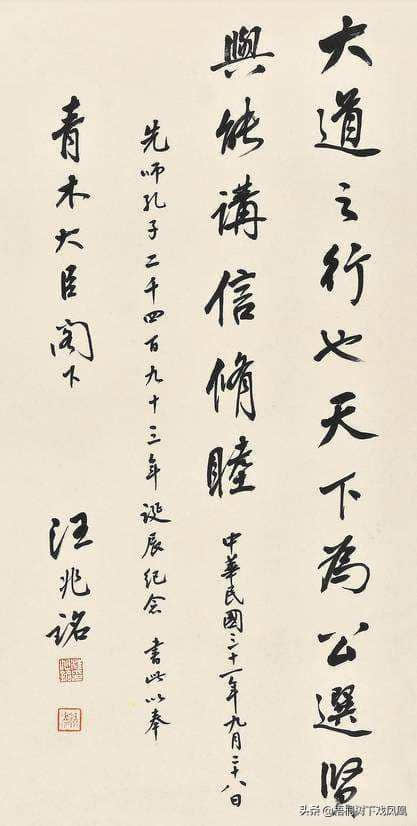 大道之行也天下為公選賢
與能講信脩睦
中華民國三十一年九月二十八日
先師孔子二千四百九十三年誕辰紀念 書此以奉
青木大臣閣下
汪兆銘
头条 @梧桐树下戏凤凰